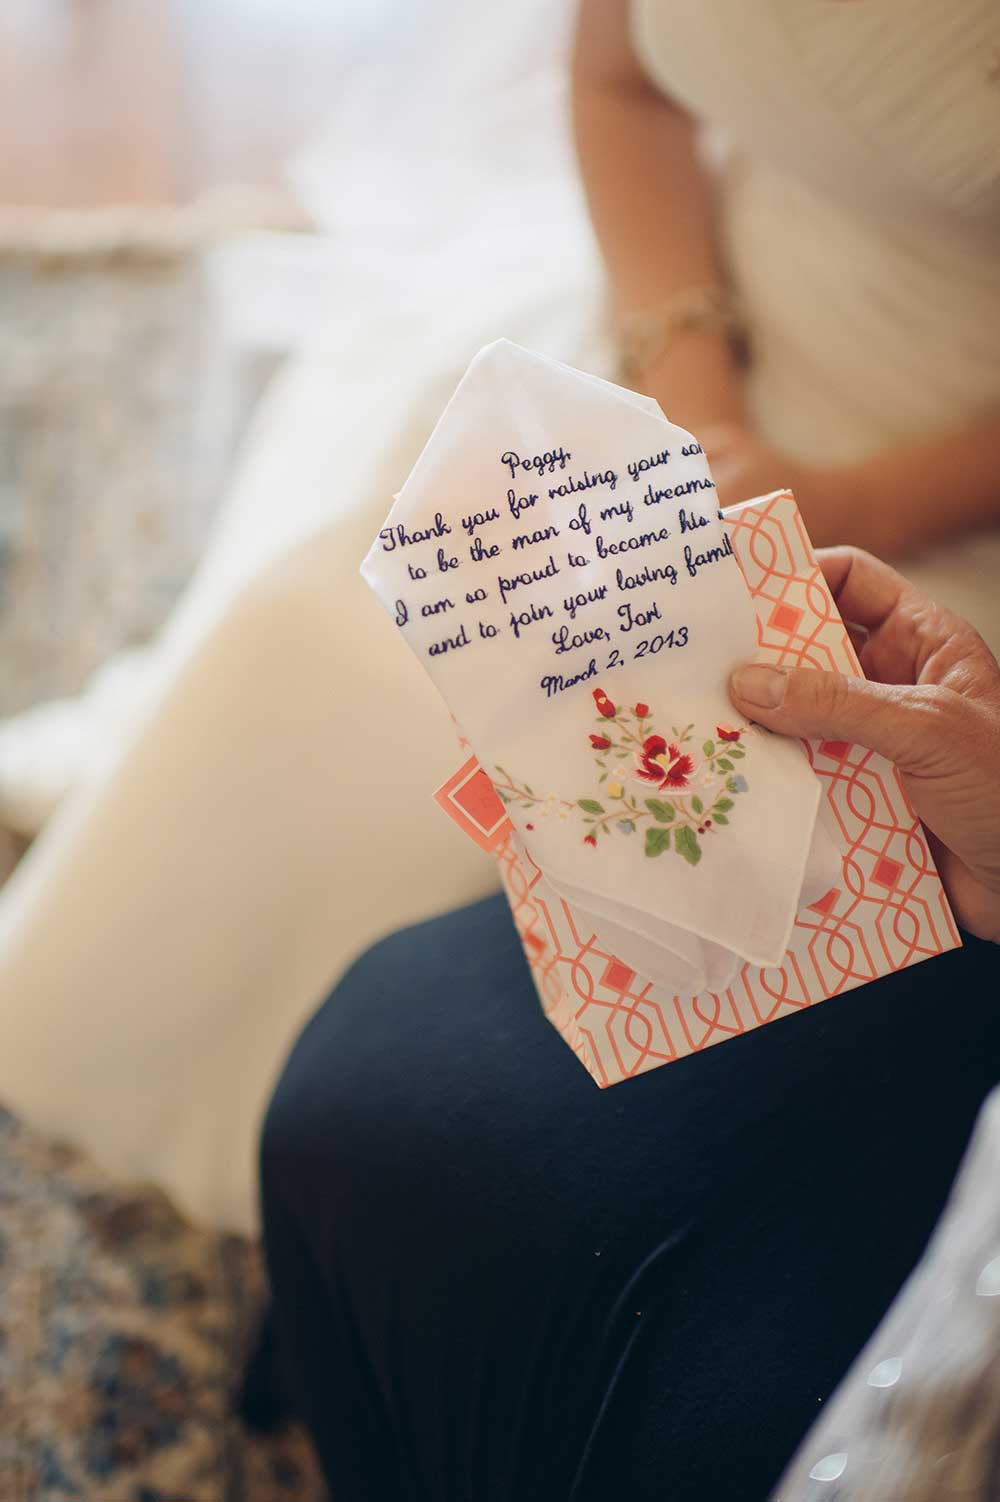 Peggy,
Thank you for raising your son
to be the man of my dreams.
I am so proud to become his
and to join your loving famil
Love, Tori
March 2, 2013